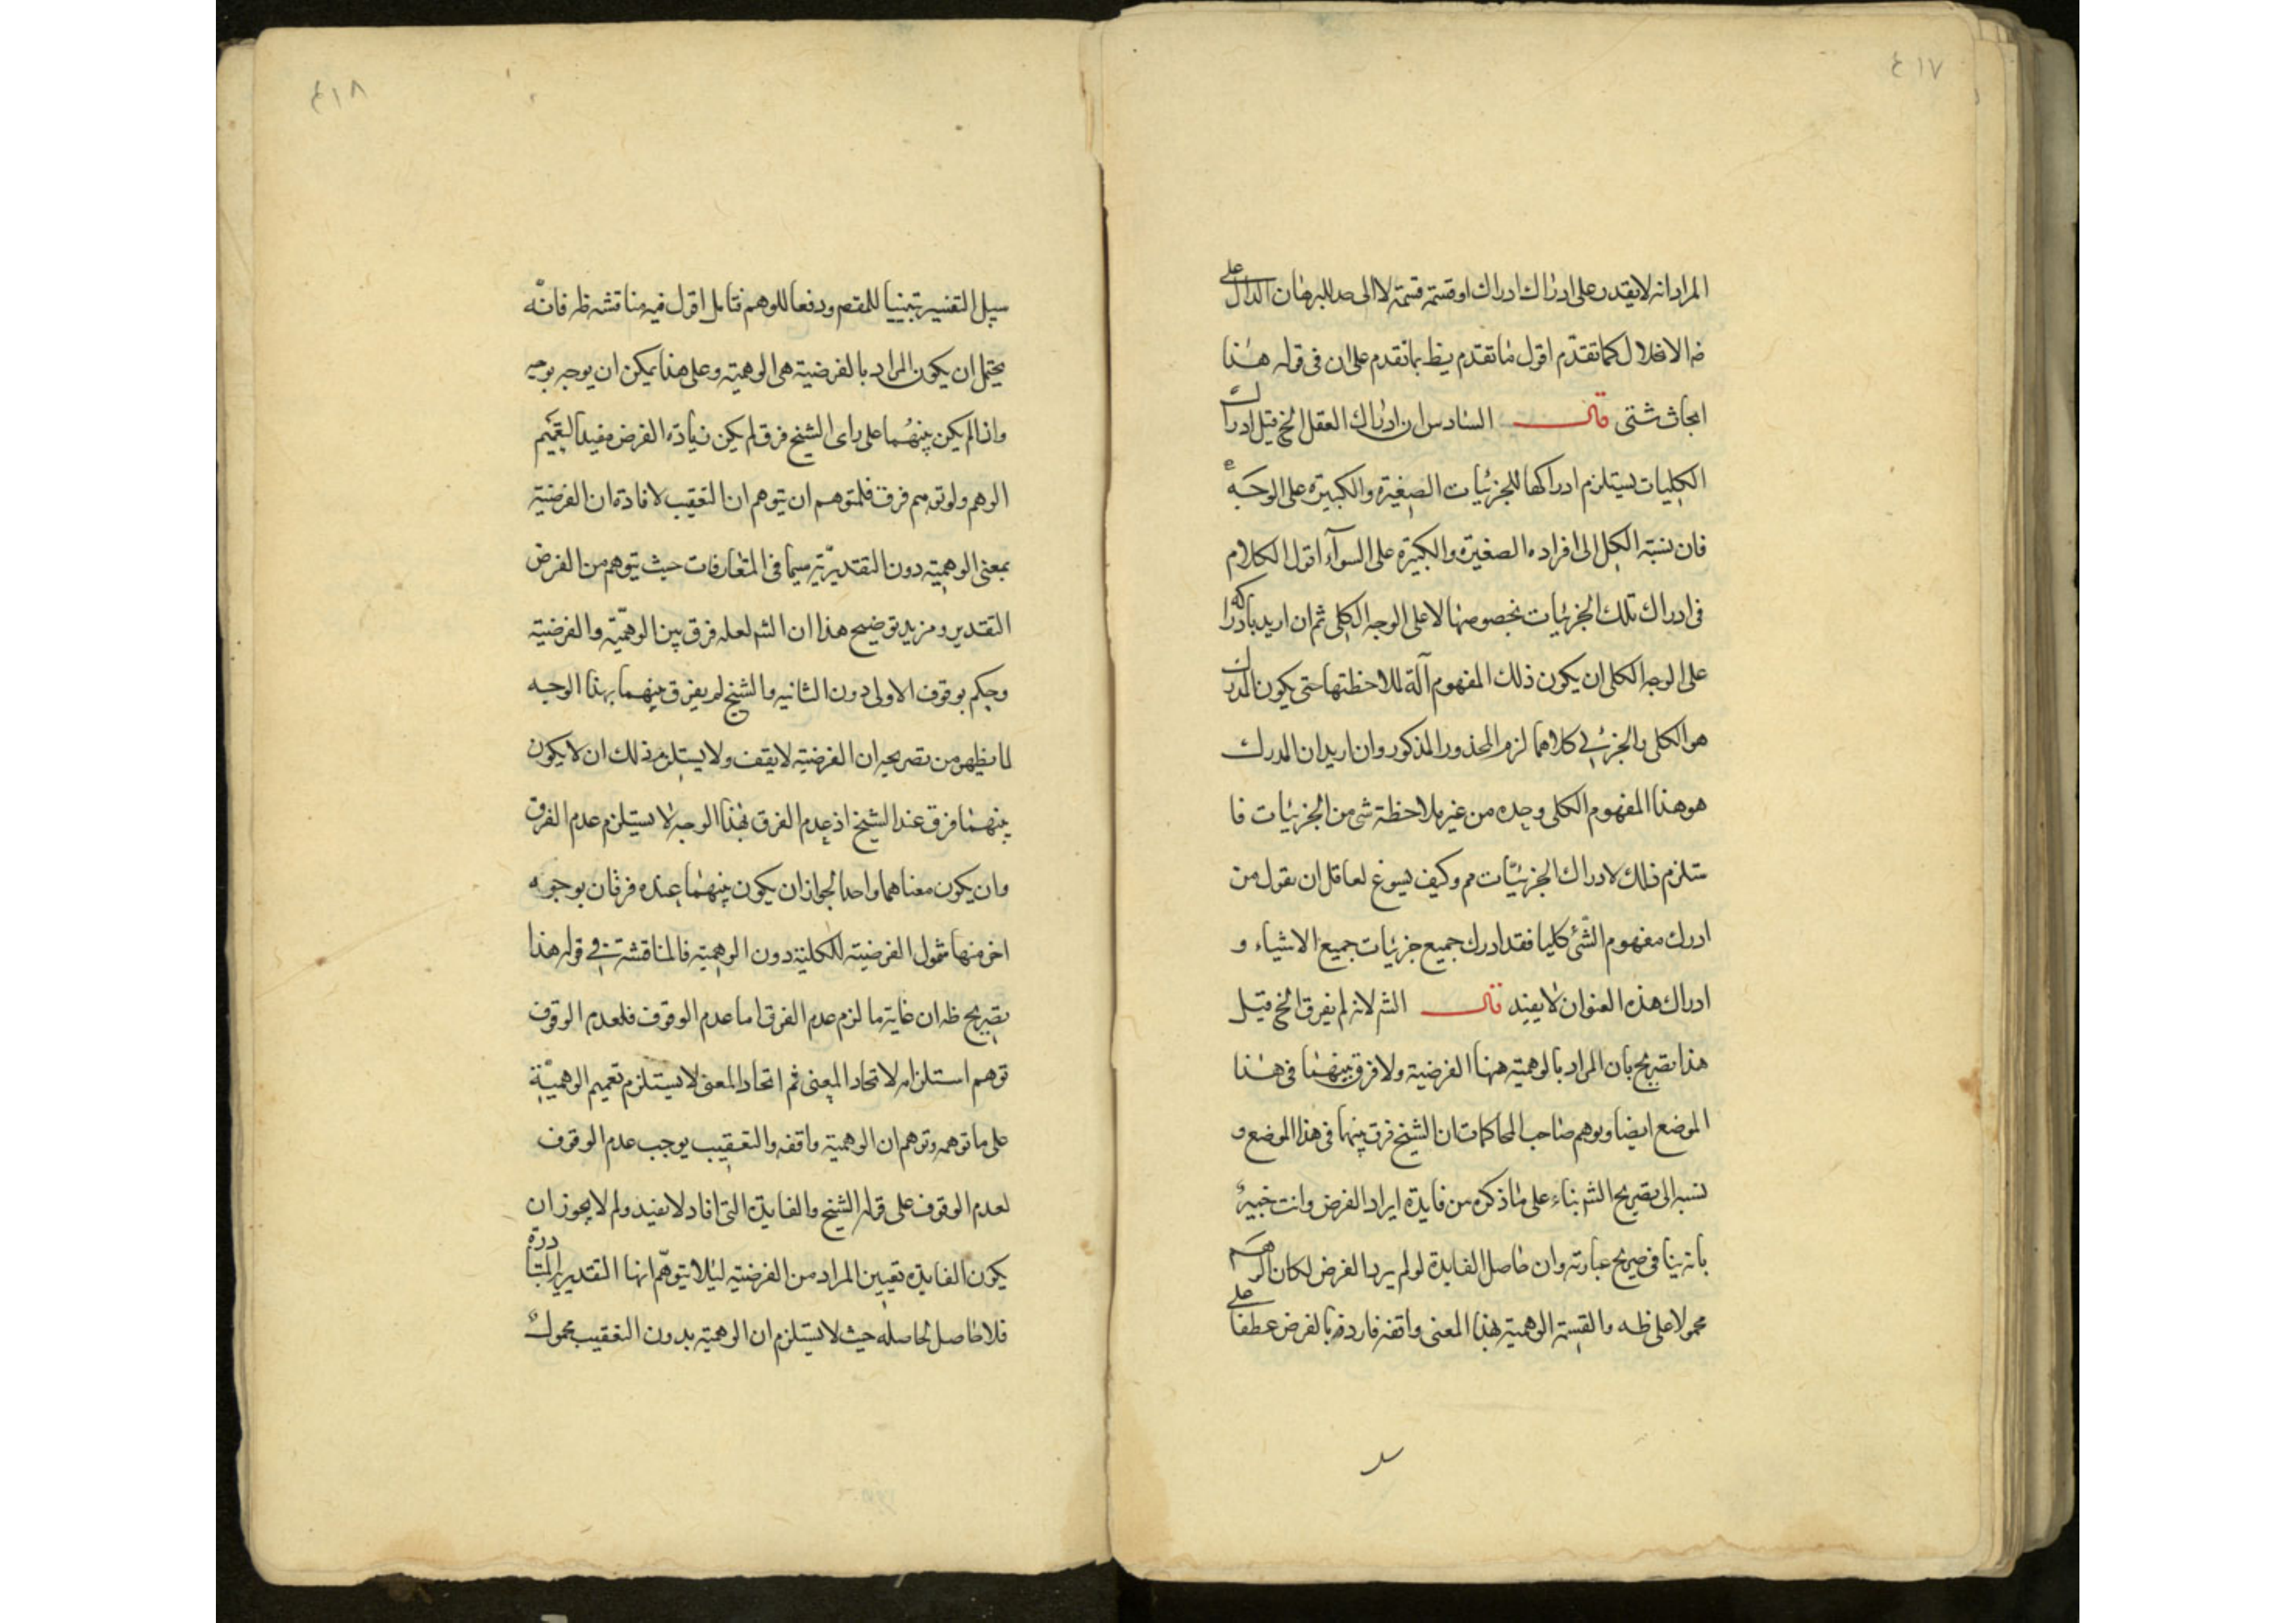 ٤١٧
المراد انه لا يقدر على ادراك ادراك او قسمة قسمة لا الى حد للبرهان الدال على
الاختلال كما تقدم اقول ما تقدم يظ بما تقدم على ان فى قوله هذا
ابحاث شتى قال السادس ان ادراك العقل الخ قيل ادراك
الكليات يستلزم ادراكها للجزئيات الصغيرة والكبيرة على الوجه
فان نسبة الكل الى افراده الصغيرة والكبيرة على السوآء اقول الكلام
فى ادراك تلك الجزئيات بخصوصها لا على الوجه الكلى ثم ان اريد بادراكه
على الوجه الكلى ان يكون ذلك المفهوم آلة لملاحظتها حتى يكون المدرك
هو الكلى والجزئى كلاهما لزم المحذور المذكور وان اريد ان المدرك
هو هذا المفهوم الكلى وحده من غير ملاحظة شى من الجزئيات فا
ستلزم ذلك لادراك الجزئيات مم وكيف يسوغ لعاقل ان يقول من
ادرك مفهوم الشئ كليا فقد ادرك جميع جزئيات جميع الاشياء و
ادراك هذه العنوان لا يفيد قال الش لانه لم يفرق الخ قيل
هذا تصريح بان المراد بالوهمية ههنا الفرضية ولا فرق بينهما فى هذا
الموضع ايضا وتوهم صاحب المحاكمات ان الشيخ فرق بينها فى هذا الموضع و
نسبه الى تصريح الش بناء على ما ذكره من فايدة ايراد الفرض وانت خبير
بانه ينافى صريح عبارته وان حاصل الفايدة لو لم يرد الفرض لكان الوهم
محمولا على ظه والقسمة الوهمية بهذا المعنى واقفه فاردفه بالفرض عطفا على
٤١٨
سبيل التفسير تبنيها للمقصم ودفعا للوهم فتامل اقول فيه مناقشه ظه فانّه
يحتمل ان يكون المراد بالفرضية هى الوهمية وعلى هذا يمكن ان يوجه بوجه
واذا لم يكن بينهما على راى الشيخ فرق لم يكن زيادة الفرض مفيدا لتعميم
الوهم ولو توهم فرق فلمتوهم ان يتوهم ان التعقيب لافادة ان الفرضية
بمعنى الوهمية دون التقديرية سيما فى المتعارفات حيث يتوهم من الفرض
التقدير ومزيد توضيح هذا ان الش لعله فرق بين الوهمية والفرضية
وحكم بوقوف الاولى دون الثانيه والشيخ لم يفرق بينهما بهذا الوجه
لما يظهر من تصريحه ان الفرضية لا يقف ولا يستلزم ذلك ان لا يكون
بينهما فرق عند الشيخ اذ عدم الفرق بهذا الوجه لا يستلزم عدم الفرق
وان يكون معناهما واحدا لجواز ان يكون بينهما عنده فرقان بوجوه
اخر منها شمول الفرضية للكلية دون الوهمية فالمناقشة فى قوله هذا
تصريح ظه ان غاية ما لزم عدم الفرق اما عدم الوقوف فلعدم الوقوف
توهم استلزامه لاتحاد المعنى ثم اتحاد المعنى لا يستلزم تعميم الوهمية
على ما توهمه وتوهم ان الوهمية واقفه والتعقيب يوجب عدم الوقوف
لعدم الوقوف على قوله الشيخ والفايدة التى افاد لا يفيد ولم لا يجوز ان
يكون الفايدة تعيين المراد من الفرضية ليلا يتوهّم انها التقديرى المتبادرة
فلا حاصل لحاصله حيث لا يستلزم ان الوهمية بدون التعقيب محمول